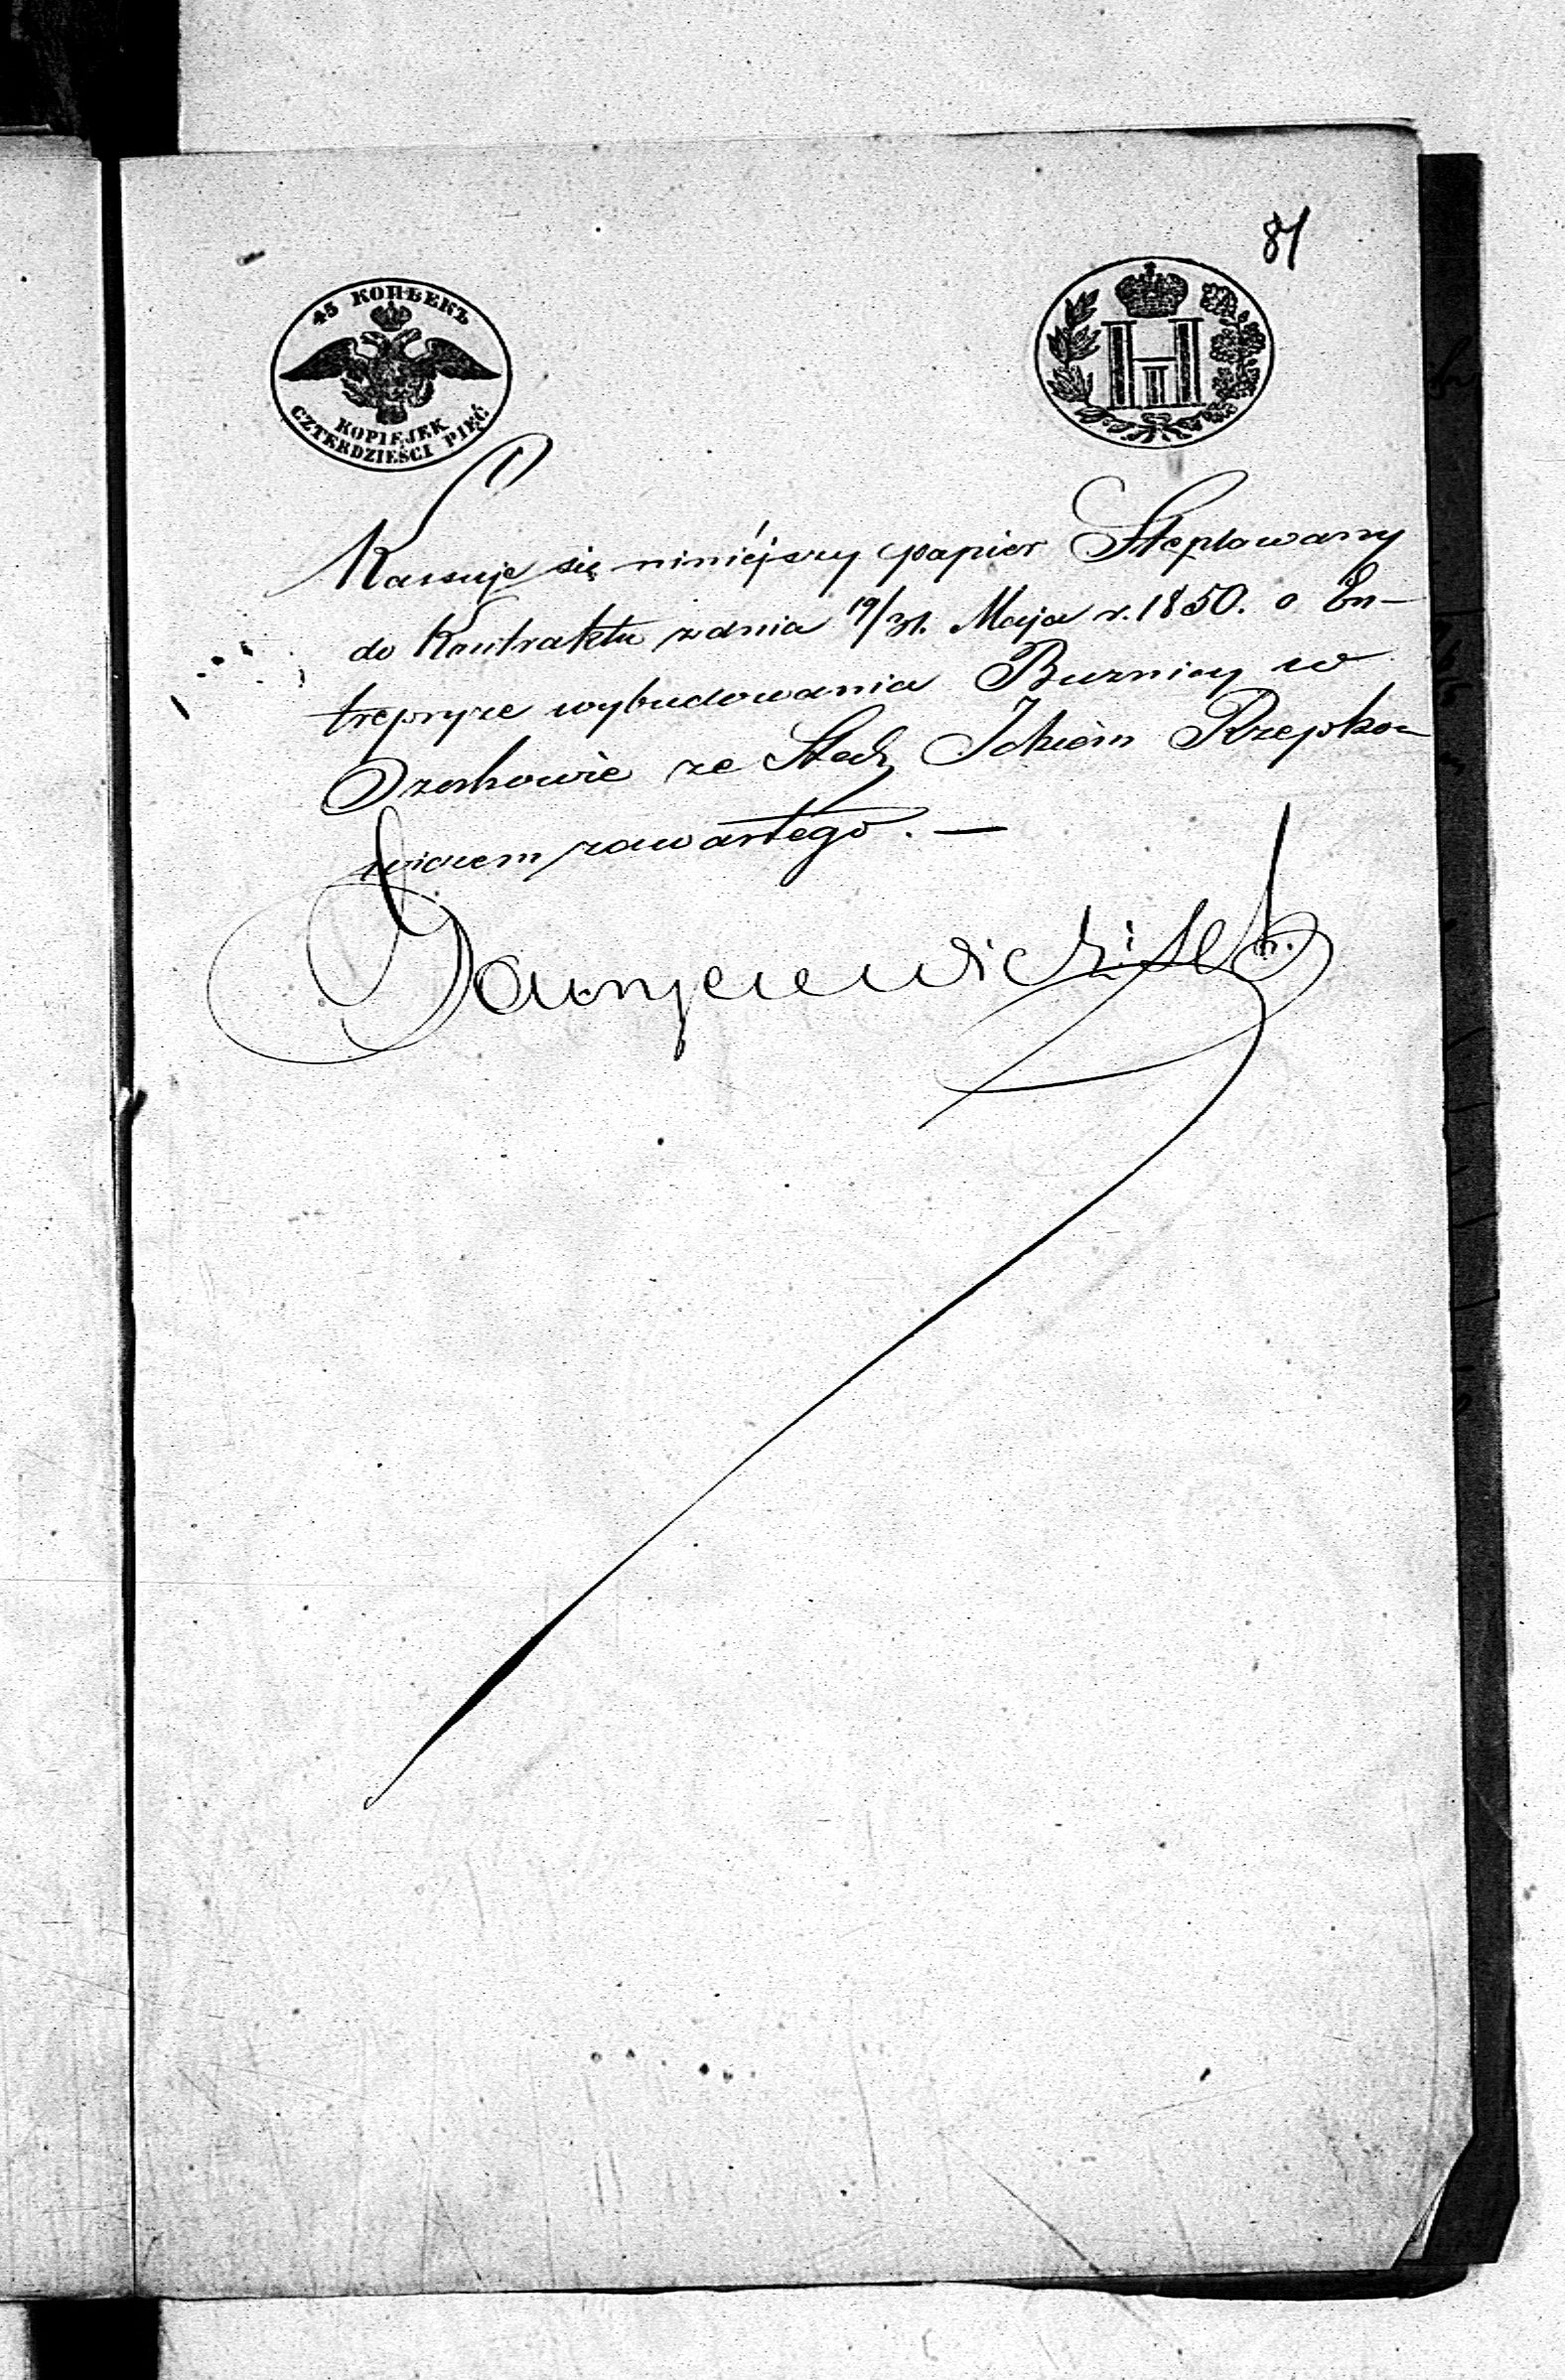 81
45 КОПѢЕКЪ
KOPIEJEK
CZTERDZIEŚCI PIĘĆ
Kassuje się niniéjszy papier Stęplowany
do Kontraktu z dnia 19/31. Maja r. 1850. o En-
trepryze wybudowania Buznicy w
Ozorkowie ze Ickiem Rzepko-
wiczem zawartego. —